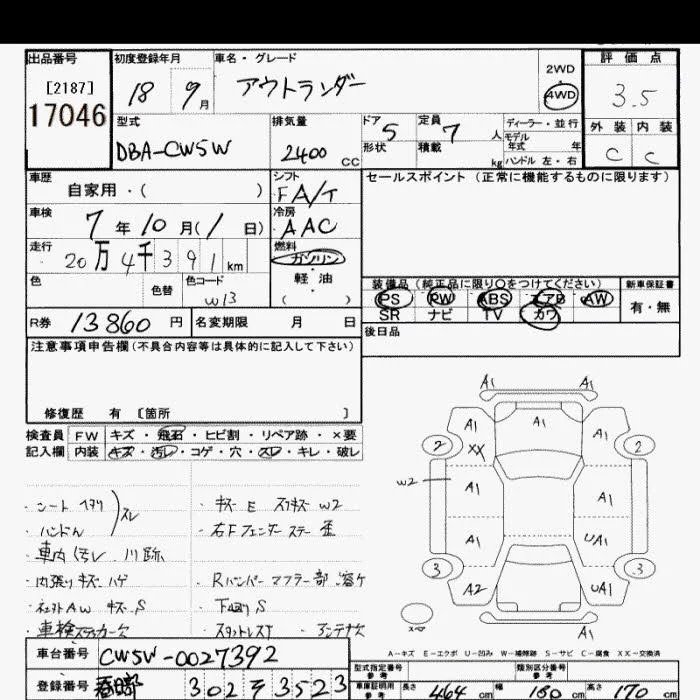 出品番号 初度登録年月 車名・グレード 評価点
[2187] 18 9月 アウトランダー 2WD 4WD 3.5
17046 型式 排気量 ドア 5 定員 7人 ディーラー・並行 外装 内装
DBA-CW5W 2400 CC 形状 積載 kg モデル年式 年 C C
ハンドル 左・右
車歴 シフト セールスポイント（正常に機能するものに限ります）
自家用・( ) FA/T
車検 冷房
7年10月(1日) AAC
走行 燃料
20万4千391km ガソリン
色 色替 色コード 軽油
W13 ( ) 装備品（純正品に限り○をつけてください） 新車保証書
PS PW ABS エアB AW 有・無
R券 13860円 名変期限 月 日 SR ナビ TV カワ
後日品
注意事項申告欄（不具合内容等は具体的に記入して下さい）
修復歴 有 〔箇所 〕
検査員 FW キズ・飛石・ヒビ割・リペア跡・×要
記入欄 内装 キズ・汚レ・コゲ・穴・スレ・キレ・破レ
A1 A1
A1 A1 A1
2 XX 2
W2 A1 A1
A1 UA1
3 A2 UA1 3
A1
・シート ヘタリ スレ
・ハンドル
・車内汚レ
・内張りキズ ハゲ
AW キズ S
・車検ステッカー欠
・キズ E W2
・右Fフェンダーステー歪
・Rバンパーマフラー部溶ケ
・下廻りS
・アンテナ欠
A－キズ E－エクボ U－凹み W－補修跡 S－サビ C－腐食 XX－交換済
車台番号 CW5W-0027392
登録番号 春日部 302 3523
型式指定番号 類別区分番号
車庫証明用参考 長さ 464cm 幅 180cm 高さ 170cm